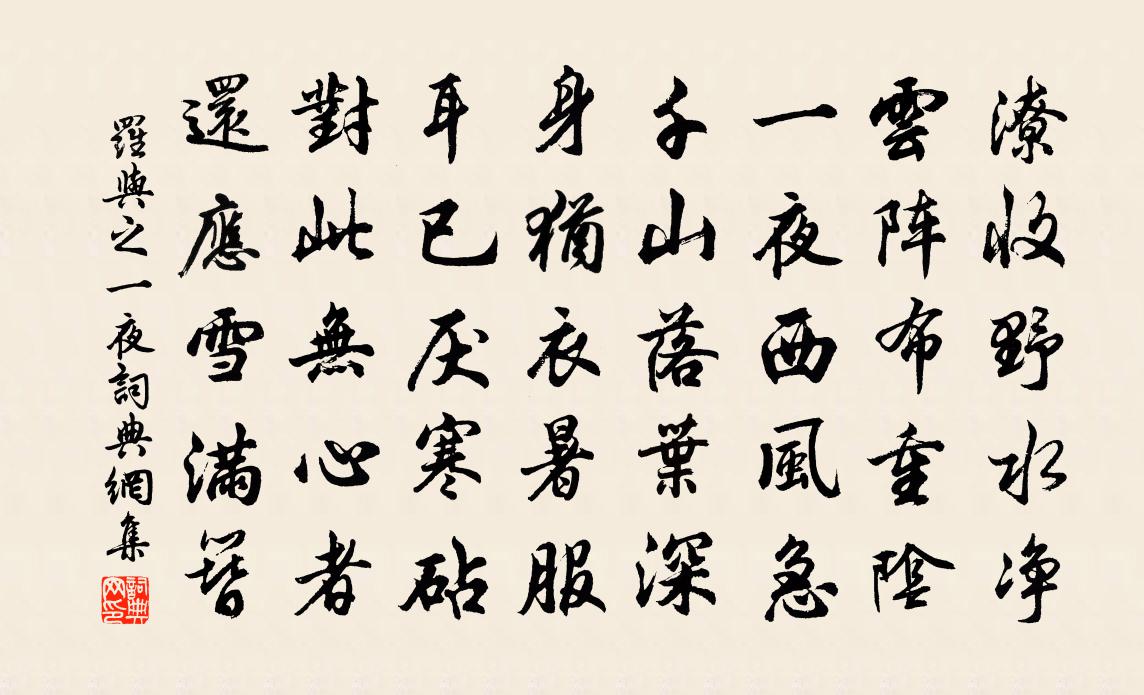 潦收野水净
雲阵布重陰
一夜西風急
千山落葉深
身猶衣暑服
耳已厌寒砧
對此無心者
還應雪满簪
羅與之一夜詞典網集